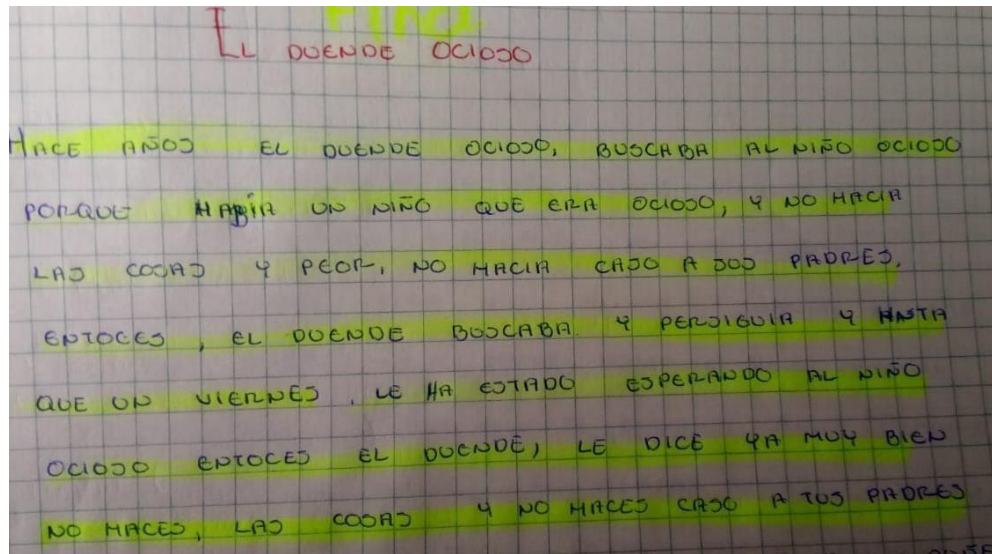 Final
EL DUENDE OCIOSO
HACE AÑOS EL DUENDE OCIOSO, BUSCABA AL NIÑO OCIOSO
PORQUE HABÍA UN NIÑO QUE ERA OCIOSO, Y NO HACIA
LAS COSAS Y PEOR, NO HACIA CASO A SUS PADRES.
ENTOCES, EL DUENDE BUSCABA Y PERSIGUIA Y HASTA
QUE UN VIERNES, LE HA ESTADO ESPERANDO AL NIÑO
OCIOSO ENTOCES EL DUENDE, LE DICE YA MUY BIEN
NO HACES, LAS COSAS Y NO HACES CASO A TUS PADRES